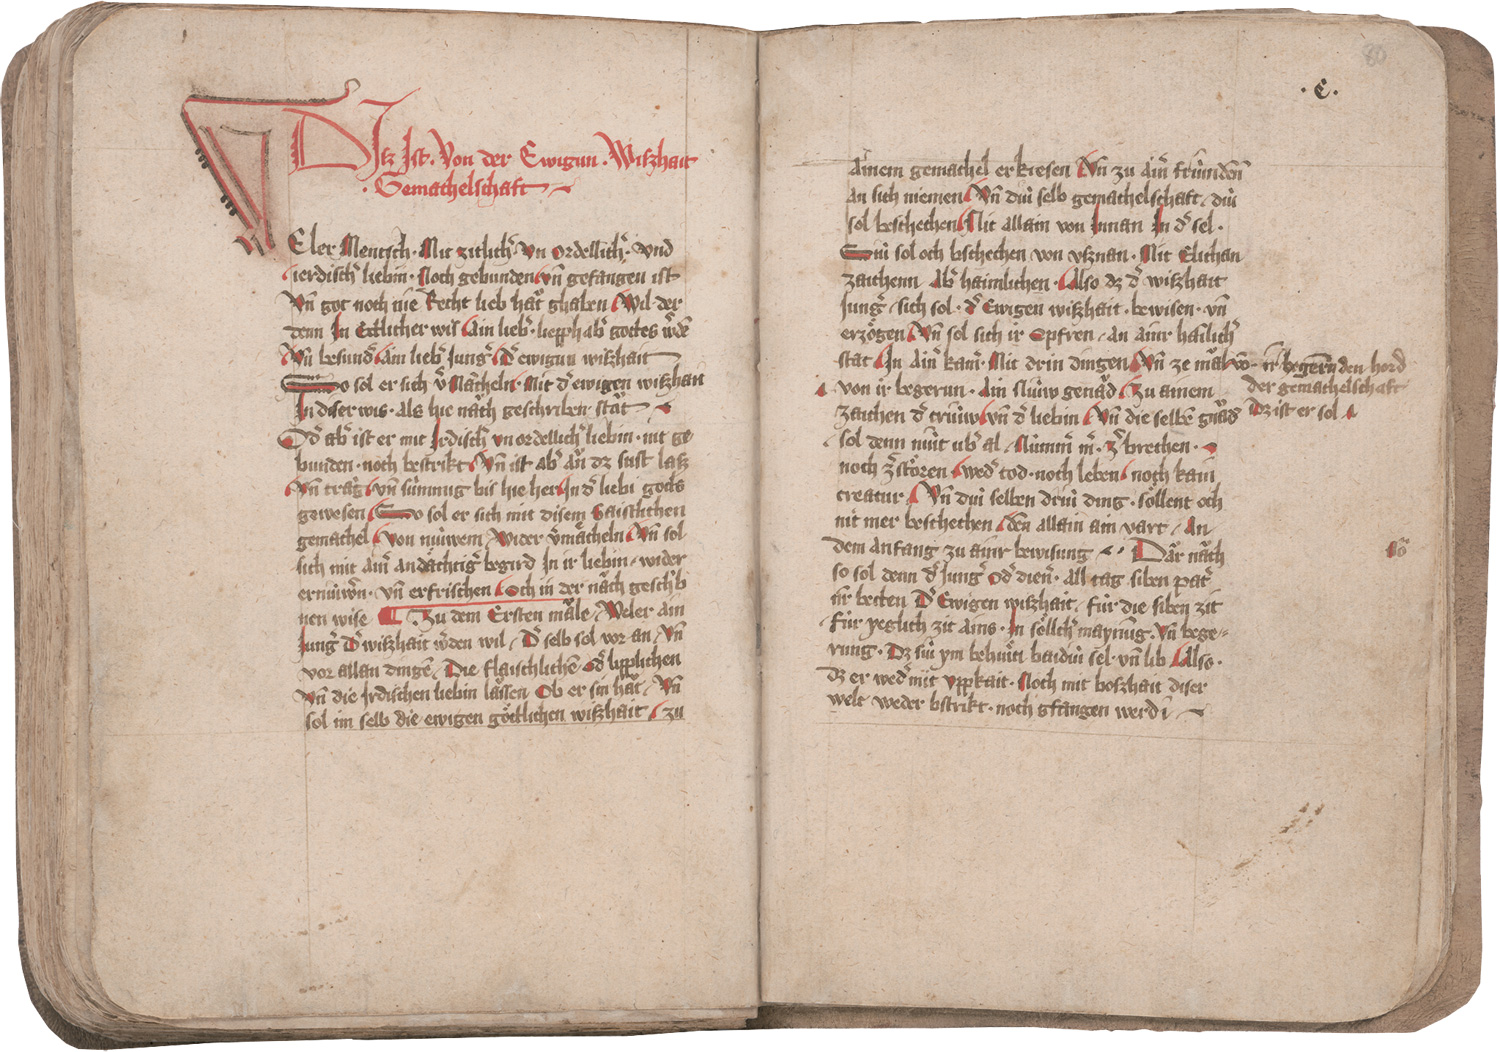 Diſz Iſt · Von der Ewigun · Wiſzhait
· Gemachelſchaft
WEler Mentſch · Mit zitlich͛ · vn̄ ordellich͛ · vnd
ierdiſch͛ liebin · Noch gebunden vn̄ gefangen iſt
Vn̄ got noch nie Recht lieb hăt ghaben Wil der
denn In Ettlicher wiſ Ain lieb͛ · ab͛ gottes
Vn̄ beſund͛ Ain lieb͛ Jung͛ D͛ ewigun wiſzhait
So ſol er ſich v͛Mächeln · Mit d͛ ewigen wiſzhait
In diſer wis · als hie năch geſchriben ſtăt
Od͛ ab͛ iſt er mit Irdiſch͛ vn ordellich͛ liebin · nit ge
bunden · noch beſtrikt Vn̄ iſt ab͛ ăn dz ſuſt laſz
Vn̄ trăg vn̄ ſümnig bis hie her In d͛ liebi gotts
geweſen So ſol er ſich mit diſem Gaiſtlichen
gemachel Von nüwem Wider v͛mächeln Vn̄ ſol
ſich mit aim͛ andächtig͛ begird In ir liebin · wider
ernüw͛n · vn̄ erfriſchen Och in der năch geſch͛b
nen wiſe Zu dem Erſten măle Weler ain
Jung͛ D͛ wiſzhait w͛den wil D͛ ſelb ſol vor an Vn̄
vor allan dingē Die flaiſchlichē Od͛ lipplichen
Vn̄ die Irdiſchen liebin lăſſen Ob er ſin hăt Vn̄
ſol im ſelb die ewigen göttlichen wiſzhait zu
80
· C ·
Ainem gemachel erkieſen Vn̄ zu aim͛ fründen
an ſich niemen Vn̄ düi ſelb gemachelſchaft düi
ſol beſchechen Nit allain von Innan In d͛ ſel ·
Süi ſol och bſchechen von vſznan · Mit Elichan
zaichenn Ab͛ haimlichen · Alſo dz d͛ wiſzhait
Jung͛ ſich ſol · d͛ Ewigen wiſzhait · bewiſen · vn̄
erzögen Vn̄ ſol ſich ir Opfren an ainr hailich͛
ſtat In aim͛ kam͛ · Mit drin dingen Vn̄ ze măl
von ir begerun · Ain genăd Zu ainem
Zaichen d͛ trüiw vn̄ d͛ liebin Vn̄ die ſelbē gnăd
ſol denn nüit vb͛ al Nümm͛ m͛ · z͛brechen ·
noch z͛ſtören wed͛ tod · noch leben noch kain
creatur Vn̄ düi ſelben drüi ding · ſöllent och
nit mer beſchechen den allain ain vart An
dem anfang zu ainr bewiſung Dăr năch
ſo ſol denn d͛ Jung͛ Od͛ dien͛ · all tag ſiben pat͛
nr betten D͛ Ewigen wiſzhait · für die ſiben zit
für yeglich zit ains · In ſöllch͛ maynūg · vn̄ bege
rung · Dz ſüi ym behüt baidüi ſel · vn̄ lib Alſo ·
dz er wed͛ mit vppkait · Noch mit boſzhait diſer
welt weder bſtrikt · noch gfangen werdi
den hord
der gemachelſchaft
Dz iſt er ſol